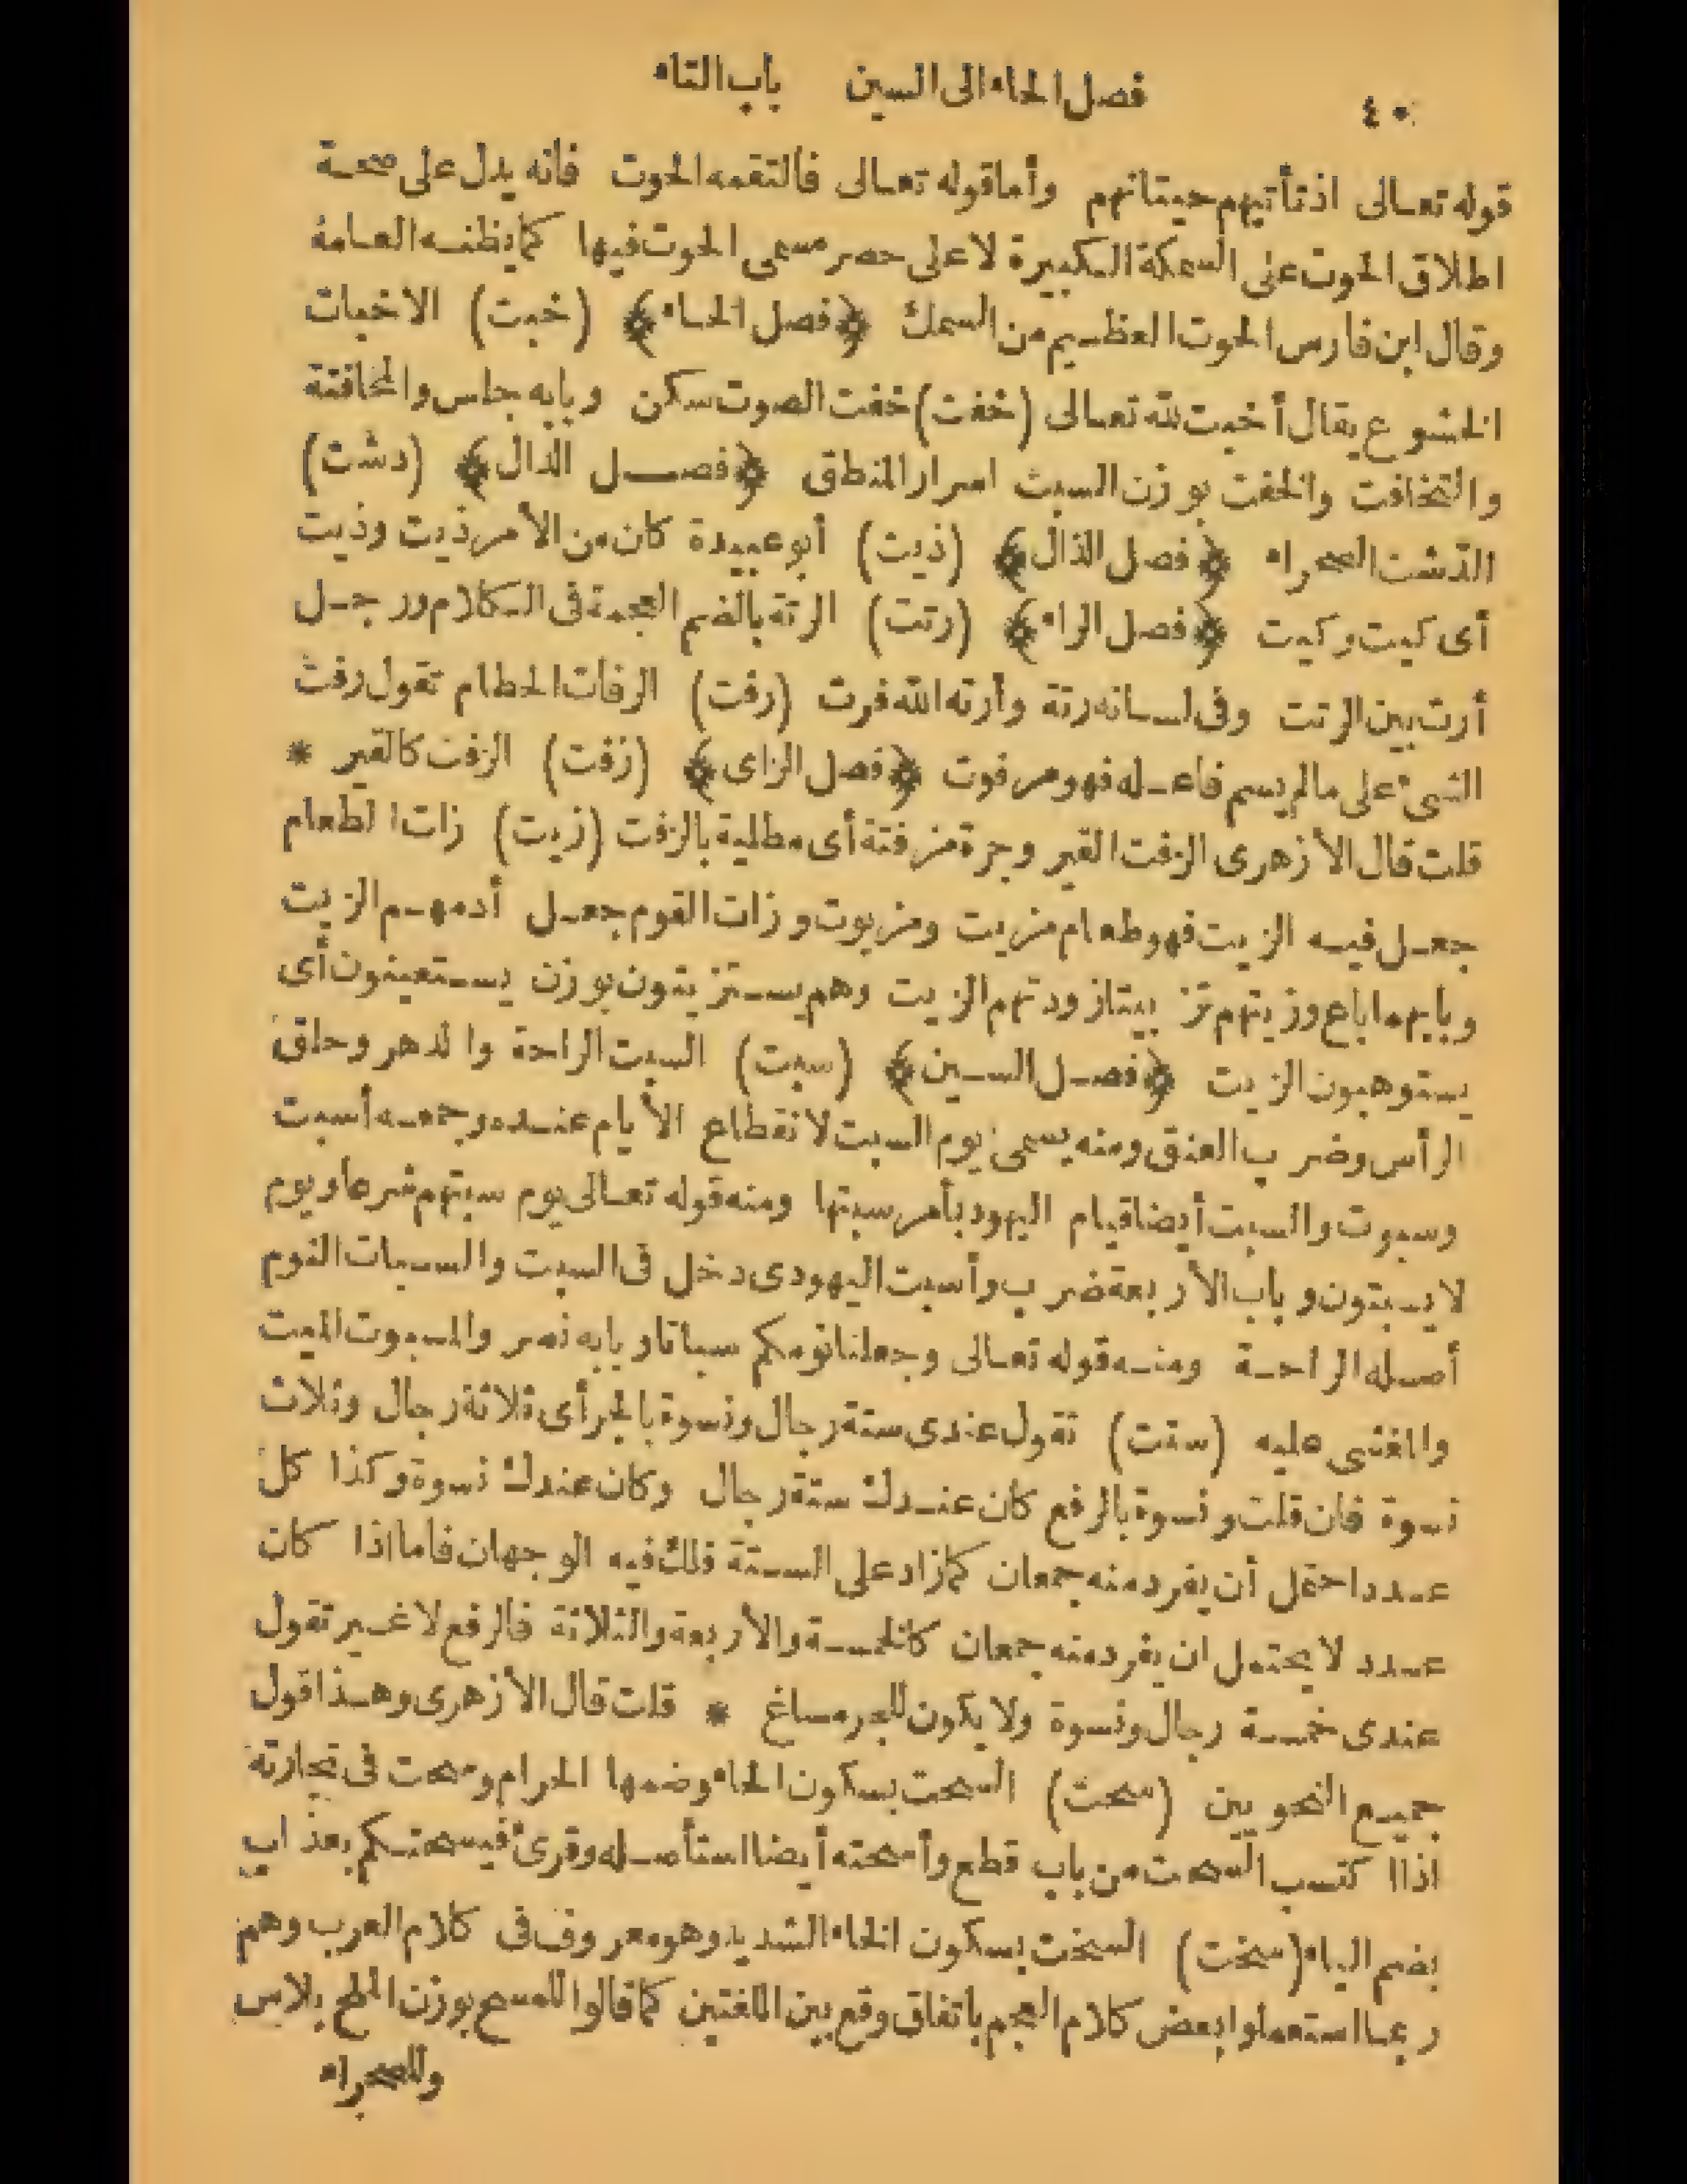 ٤٠ فصل الحاء الى السين باب التاء
قوله تعالى اذ تأتيهم حيتانهم وأما قوله تعالى فالتقمه الحوت فانه يدل على صحة
اطلاق الحوت على السمكة الكبيرة لا على حصر مسمى الحوت فيها كما يظنه العامة
وقال ابن فارس الحوت العظيم من السمك ﴿فصل الخاء﴾ (خبت) الاخبات
الخشوع يقال أخبت لله تعالى (خفت) خفت الصوت سكن وبابه جلس والمخافتة
والتخافت والخفت بوزن السبت اسرار المنطق ﴿فصل الدال﴾ (دشت)
الدشت الصحراء ﴿فصل الذال﴾ (ذيت) أبو عبيدة كان من الأمر ذيت وذيت
أى كيت وكيت ﴿فصل الراء﴾ (رتت) الرتة بالضم العجمة فى الكلام ورجل
أرت بين الرتت وفى لسانه رتة وأرته الله فرت (رفت) الرفات الحطام تقول رفت
الشئ على مالم يسم فاعله فهو مرفوت ﴿فصل الزاى﴾ (زفت) الزفت كالقير *
قلت قال الأزهرى الزفت القير وجرة مزفتة أى مطلية بالزفت (زيت) زات الطعام
جعل فيه الزيت فهو طعام مزيت ومزيوت وزات القوم جعل أدمهم الزيت
وبابهما باع وزيتهم تزييتا زودتهم الزيت وهم يستزيتون بوزن يستعينون أى
يستوهبون الزيت ﴿فصل السين﴾ (سبت) السبت الراحة والدهر وحلق
الرأس وضرب العنق ومنه يسمى يوم السبت لانقطاع الأيام عنده وجمعه أسبت
وسبوت والسبت أيضا قيام اليهود بأمر سبتها ومنه قوله تعالى يوم سبتهم شرعا ويوم
لا يسبتون وباب الأربعة ضرب وأسبت اليهودى دخل فى السبت والسبات النوم
أصله الراحة ومنه قوله تعالى وجعلنا نومكم سباتا وبابه نصر والمسبوت الميت
والمغشى عليه (ستت) تقول عندى ستة رجال ونسوة بالجر أى ثلاثة رجال وثلاث
نسوة فان قلت ونسوة بالرفع كان عندك ستة رجال وكان عندك نسوة وكذا كل
عدد احتمل أن يفرد منه جمعان كما زاد على الستة فلك فيه الوجهان فاما اذا كان
عدد لا يحتمل ان يفرد منه جمعان كالخمسة والأربعة والثلاثة فالرفع لا غير تقول
عندى خمسة رجال ونسوة ولا يكون للجر مساغ * قلت قال الأزهرى وهذا قول
جميع النحويين (سحت) السحت بسكون الحاء وضمها الحرام وسحت فى تجارته
اذا اكتسب السحت من باب قطع وأسحته أيضا استأصله وقرئ فيسحتكم بعذاب
بضم الياء (سخت) السخت بسكون الخاء الشديد وهو معروف فى كلام العرب وهم
ربما استعملوا بعض كلام العجم باتفاق وقع بين اللغتين كما قالوا للمسح بوزن الملح بلاس
وللصحراء